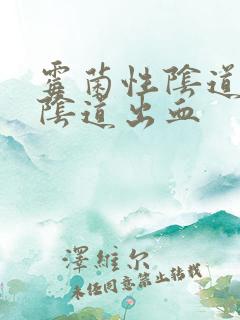 霉菌性陰道
陰道出血
澤維尔
未任同意禁止转载